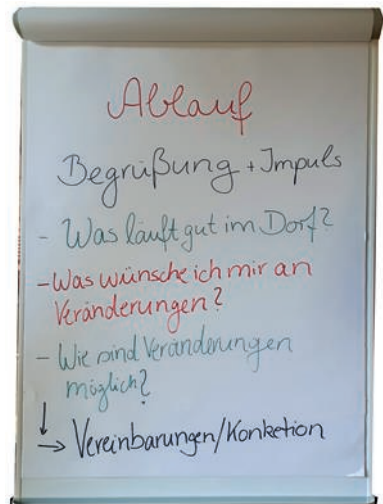 Ablauf
Begrüßung + Impuls
- Was läuft gut im Dorf?
- Was wünsche ich mir an
Veränderungen?
- Wie sind Veränderungen
möglich?
↓
→ Vereinbarungen/Konketion